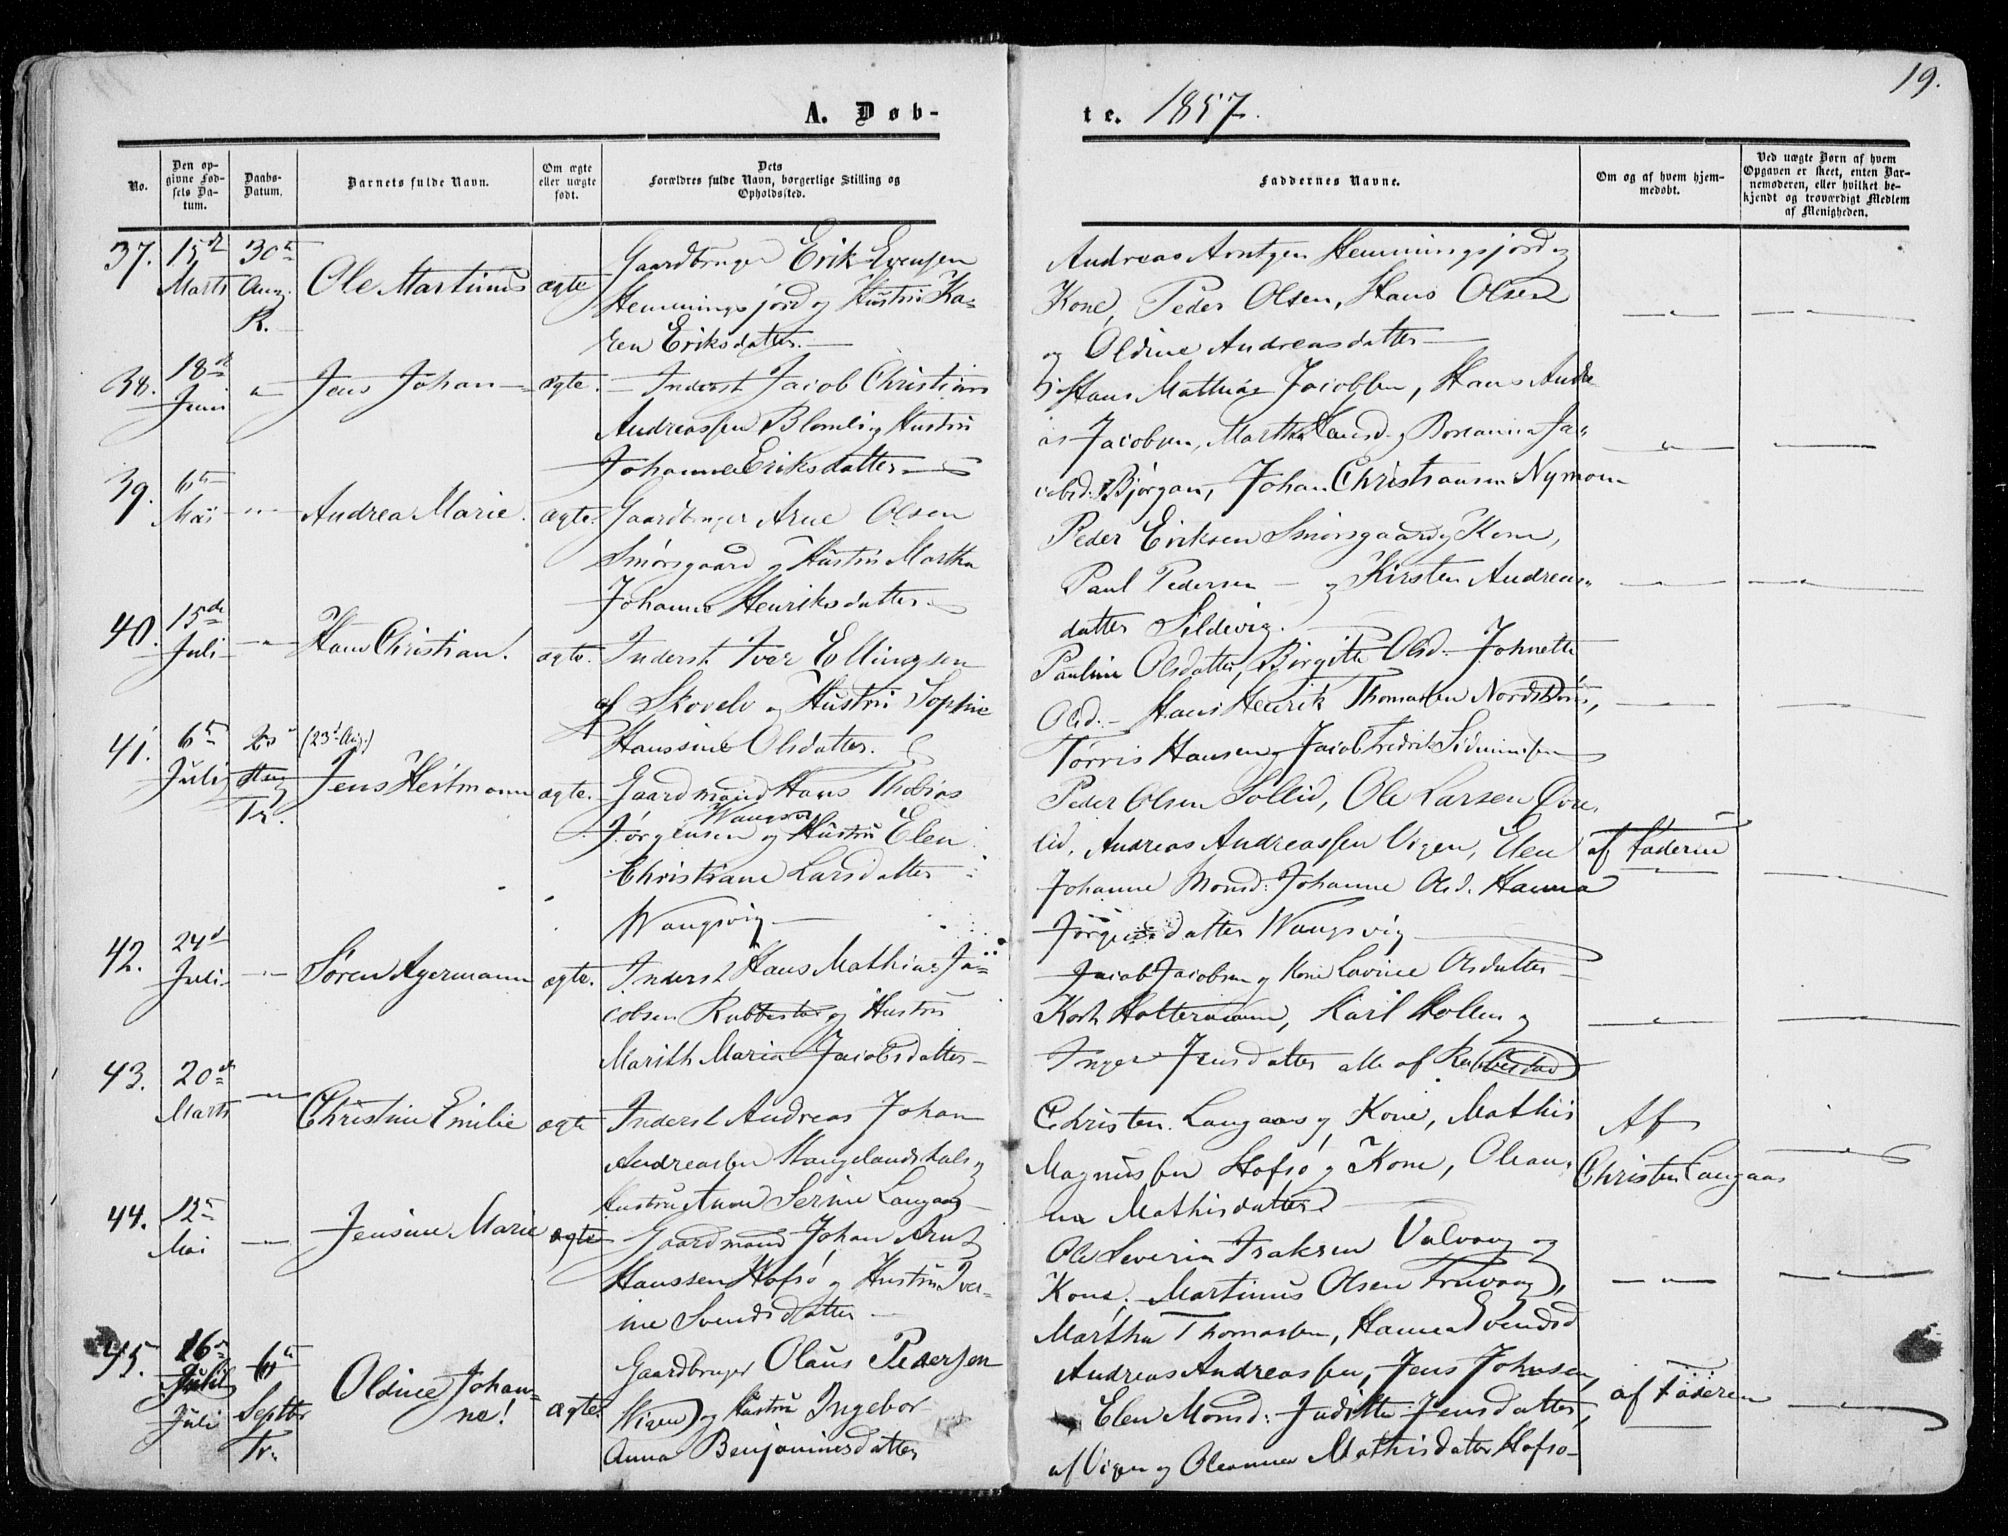 19.
A. Døb-
te. 1857.
No.
Den op-
givne Fød-
sels Da-
tum.
Daabs-
Datum.
Barnets fulde Navn.
Om ægte
eller uægte
født.
Dets
Forældres fulde Navn, borgerlige Stilling og
Opholdssted.
Faddernes Navne.
Om og af hvem hjem-
medøbt.
Ved uægte Børn af hvem
Opgaven er skeet, enten Bar-
nemoderen, eller hvilket be-
kjendt og troværdigt Medlem
af Menigheden.
37. 15de Marts
30te Aug. K.
Ole Martinus
ægte
Gaardbruger Erik Evensen
Hemmingsjord og Hustru Ka-
ren Eriksdatter.
Andreas Arntzen Hemmingsjord og
Kone, Peder Olsen, Hans Olsen
og Oldine Andreasdatter
38. 18de Juni
"
Jens Johan
ægte.
Inderst Jacob Christian
Andreassen Blomli og Hustru
Johanna Eriksdatter
Hans Mathias Jacobsen, Hans Andre
as Jacobsen, Martha Hansd. og Ja-
cobsd. Bjørgan, Johan Christiansen Nymoen
39. 6te Mai
"
Andrea Marie.
ægte.
Gaardbruger Arne Olsen
Smørsgaard og Hustru Martha
Johanna Henriksdatter.
Peder Eriksen Smørsgaard og Kone,
Paul Pedersen og Kirsten Andreas-
datter Sildevig.
40. 15de Juli
"
Hans Christian.
ægte.
Inderst Iver Ellingsen
af Skovelv og Hustru Sophie
Hanssine Olsdatter.
Pauline Olsdatter, Birgitte Olsd. Johnette
Olsd. Hans Henrik Thomassen
Tørris Hansen og Jacob Fredrik
41. 6te Juli
Aug Tr.
(23de Aug.)
Jens Heitmann
ægte.
Gaardmand Hans Thobias
Jørgensen Wangsv og Hustru Elen
Christiane Larsdatter
Wangsvig
Peder Olsen Sollid, Ole Larsen Øve
lid, Andreas Andreassen Vigen, Elen
Johanne Monsd: Johanne Olsd. Hanna
Jørgensdatter Wangsvig
af Faderen
42. 24de Juli
"
Søren Agermann
ægte.
Inderst Hans Mathias Ja-
cobsen Rubbestad og Hustru
Marith Maria Jacobsdatter
Jacob Jacobsen og Kone Lavine Olsdatter
Holtermann, Karl Hollen og
Inger Jensdatter alle af Rubbestad
43. 20de Marts
"
Christine Emilie
ægte
Inderst Andreas Johan
Andreassen Stangelandshals og
Hustru Anne Serine Langaas
Christen Langaas og Kone, Mathis
Magnussen Hofsø og Kone, Olean-
na Mathisdatter
Af
Christen Langaas
44. 12te Mai
"
Jensine Marie
ægte
Gaardmand Johan Arnt
Hanssen Hofsø og Hustru Iver-
ine Svendsdatter
Ole Severin Isaksen Valvaag og
Kone, Martinus Olsen Truvaag,
Martha Thomassen, Hanna Svendsd
45. 26de Juli
6te Septbr Tr.
Oldine Johan-
ne!
ægte.
Gaardbruger Olaus Pedersen
Vigen og Hustru Ingebor
Anna Benjaminsdatter
Andreas Andreassen, Jens Johnsen,
Elen Monsd: Judithe Jensdatter,
af Vigen og Oleanna Mathisdatter Hofsø
af Faderen